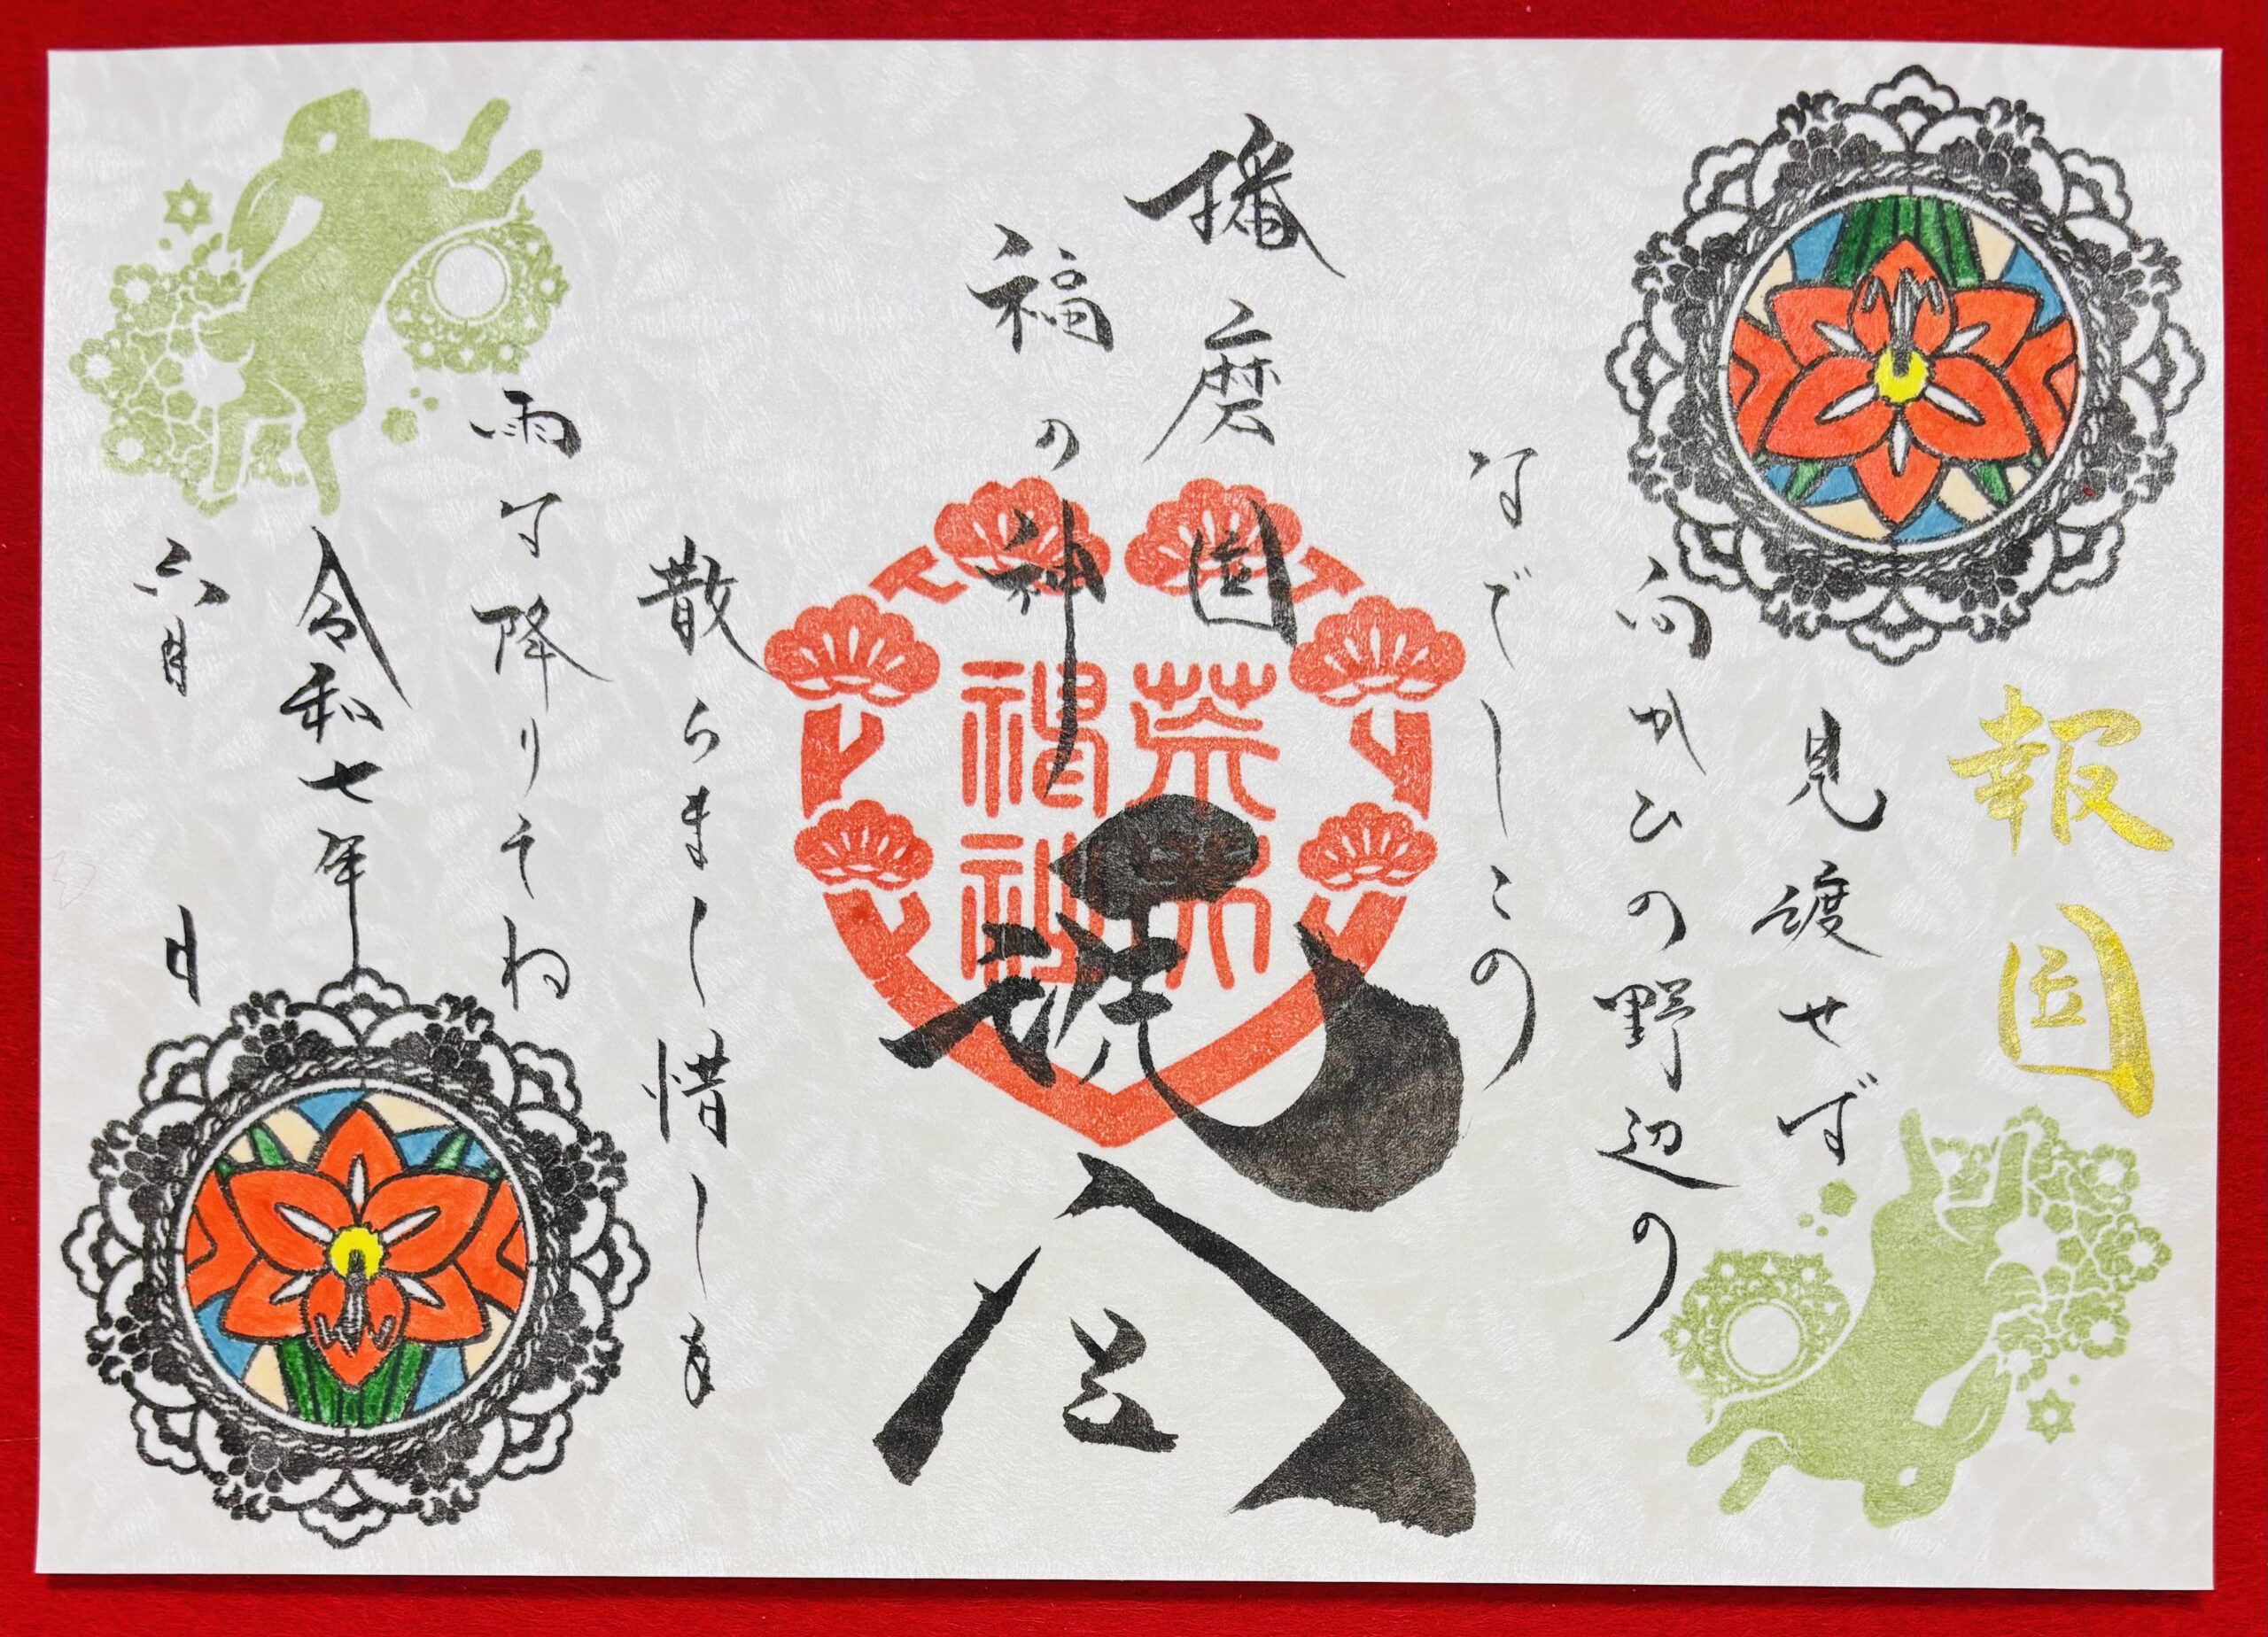 報国
見渡せば
向かひの野辺の
なでしこの
播磨国
福の神
散らまく惜しも
雨な降りそね
令和七年
六月 日